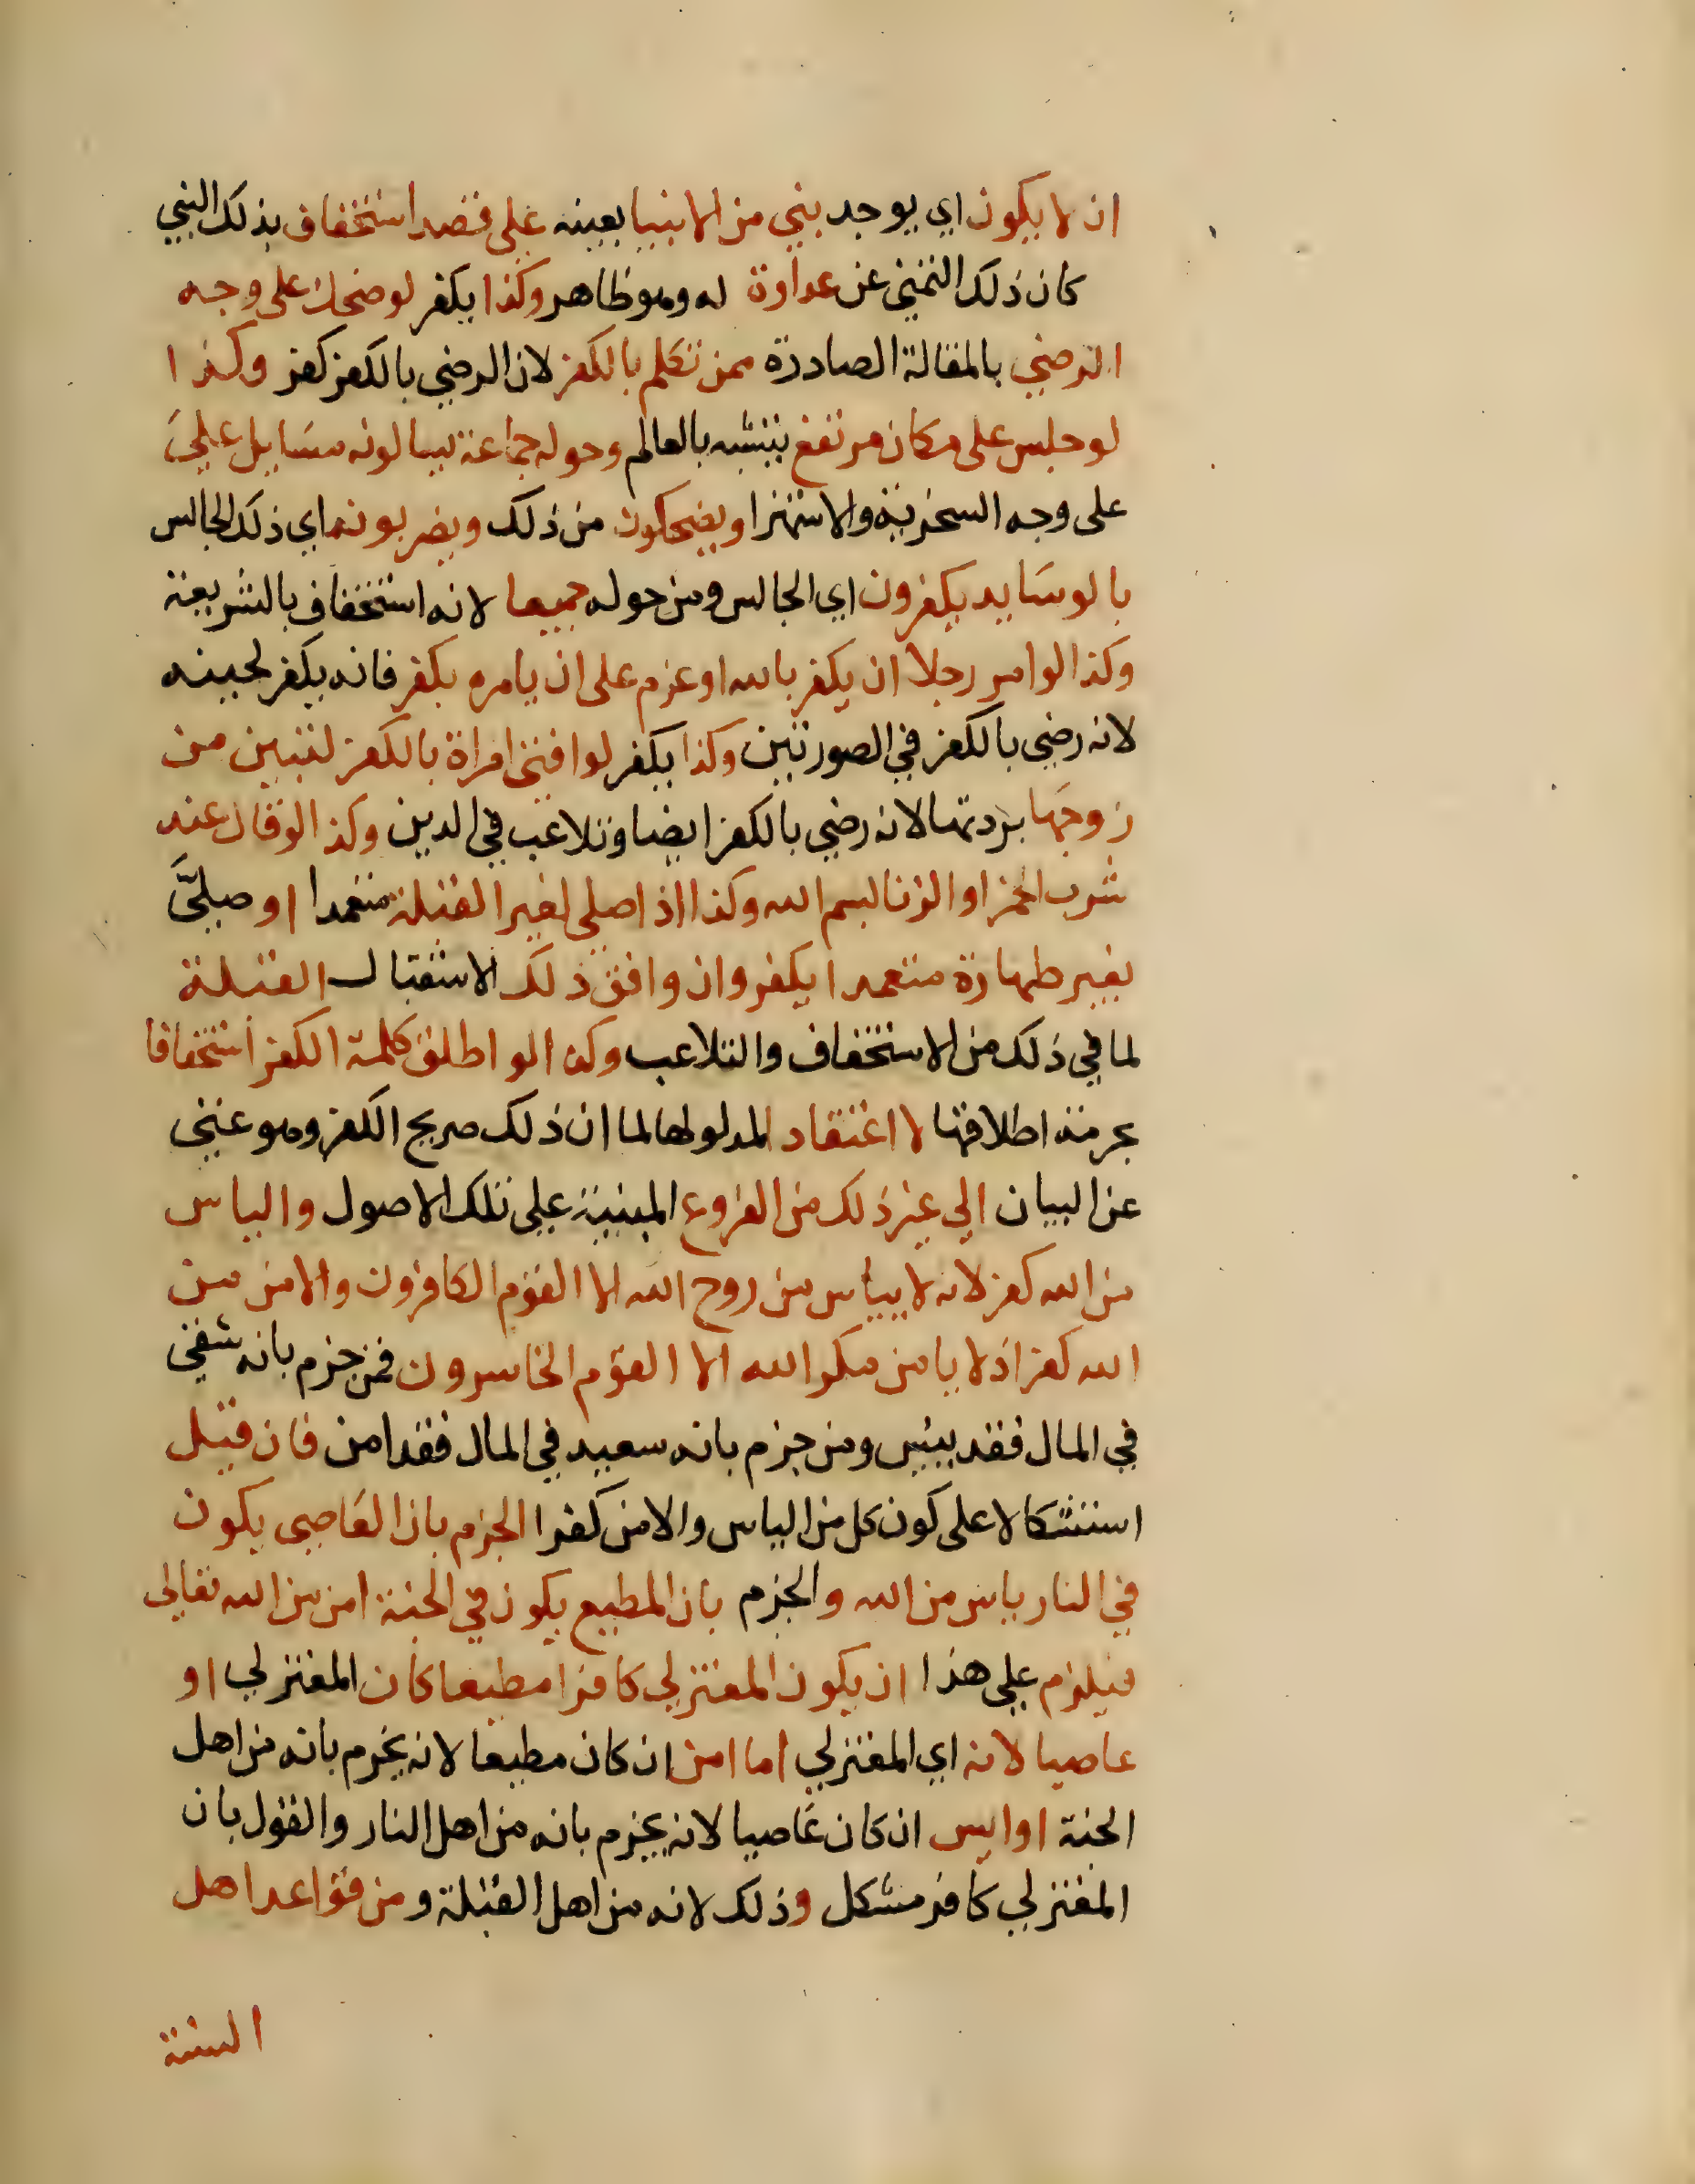 ان لا يكون اي يوجد بنبي من الانبيا بعينه علي قصد استخفاف بذلك النبي
كان ذلك التمني عن عداوة له وهو ظاهر وكذا يكفر لو ضحك على وجه
الرضي بالمقالة الصادرة ممن تكلم بالكفر لان الرضي بالكفر كفر وكذا
لو جلس على مكان مرتفع يتشبه بالعالم وحوله جماعة يسالونه مسَايل علي
على وجه السخرية والاستهزا ويضحكون من ذلك ويضربونه اي ذلك الجالس
بالوسَايد يكفرون اي الجالس ومن حوله جميعا لانه استخفاف بالشريعة
وكذا لو امر رجلا ان يكفر بالله او عزم على ان يامره بكفر فانه يكفر لحينه
لانه رضي بالكفر في الصورتين وكذا يكفر لو افتى امراة بالكفر لتبين من
زوجهَا بردتها لانه رضي بالكفر ايضا وتلاعب في الدين وكذا لو قال عند
شرب الخمر او الزنا لبسم الله وكذا اذا صلي لغير القبلة متعمدا او صلىَّ
بغير طهارة متعمدا يكفر وان وافق ذلك الاستقبال القبلة
لما في ذلك من الاستخفاف والتلاعب وكذا لو اطلق كلمة الكفر استخفافا
بحرمة اطلاقها لا اعتقاد المدلولها لما ان ذلك صريح الكفر وهو غني
عن البيان الي غير ذلك من الفروع المبنية علي تلك الاصول والياس
من الله كفر لانه لا ييأس من روح الله الا القوم الكافرون والامن من
الله كفر اذ لا يامن مكر الله الا القوم الخاسرون فمن جزم بانه شقي
في المال فقد يئس ومن جزم بانه سعيد في المال فقد امن فان قيل
استشكالا على كون كل من الياس والامن كفرا الجزم بان العَاصي يكون
في النار ياس من الله والجزم بان المطيع يكون في الجنة امن من الله تعالى
فيلزم علي هذا ان يكون المعتزلي كافرا مطيعا كان المعتزلي او
عاصيا لانه اي المعتزلي اما امن ان كان مطيعا لانه يجزم بانه من اهل
الجنة او ايس ان كان عَاصيا لانه يجزم بانه من اهل النار والقول بان
المعتزلي كافر مشكل وذلك لانه من اهل القبلة ومن قواعد اهل
السنة